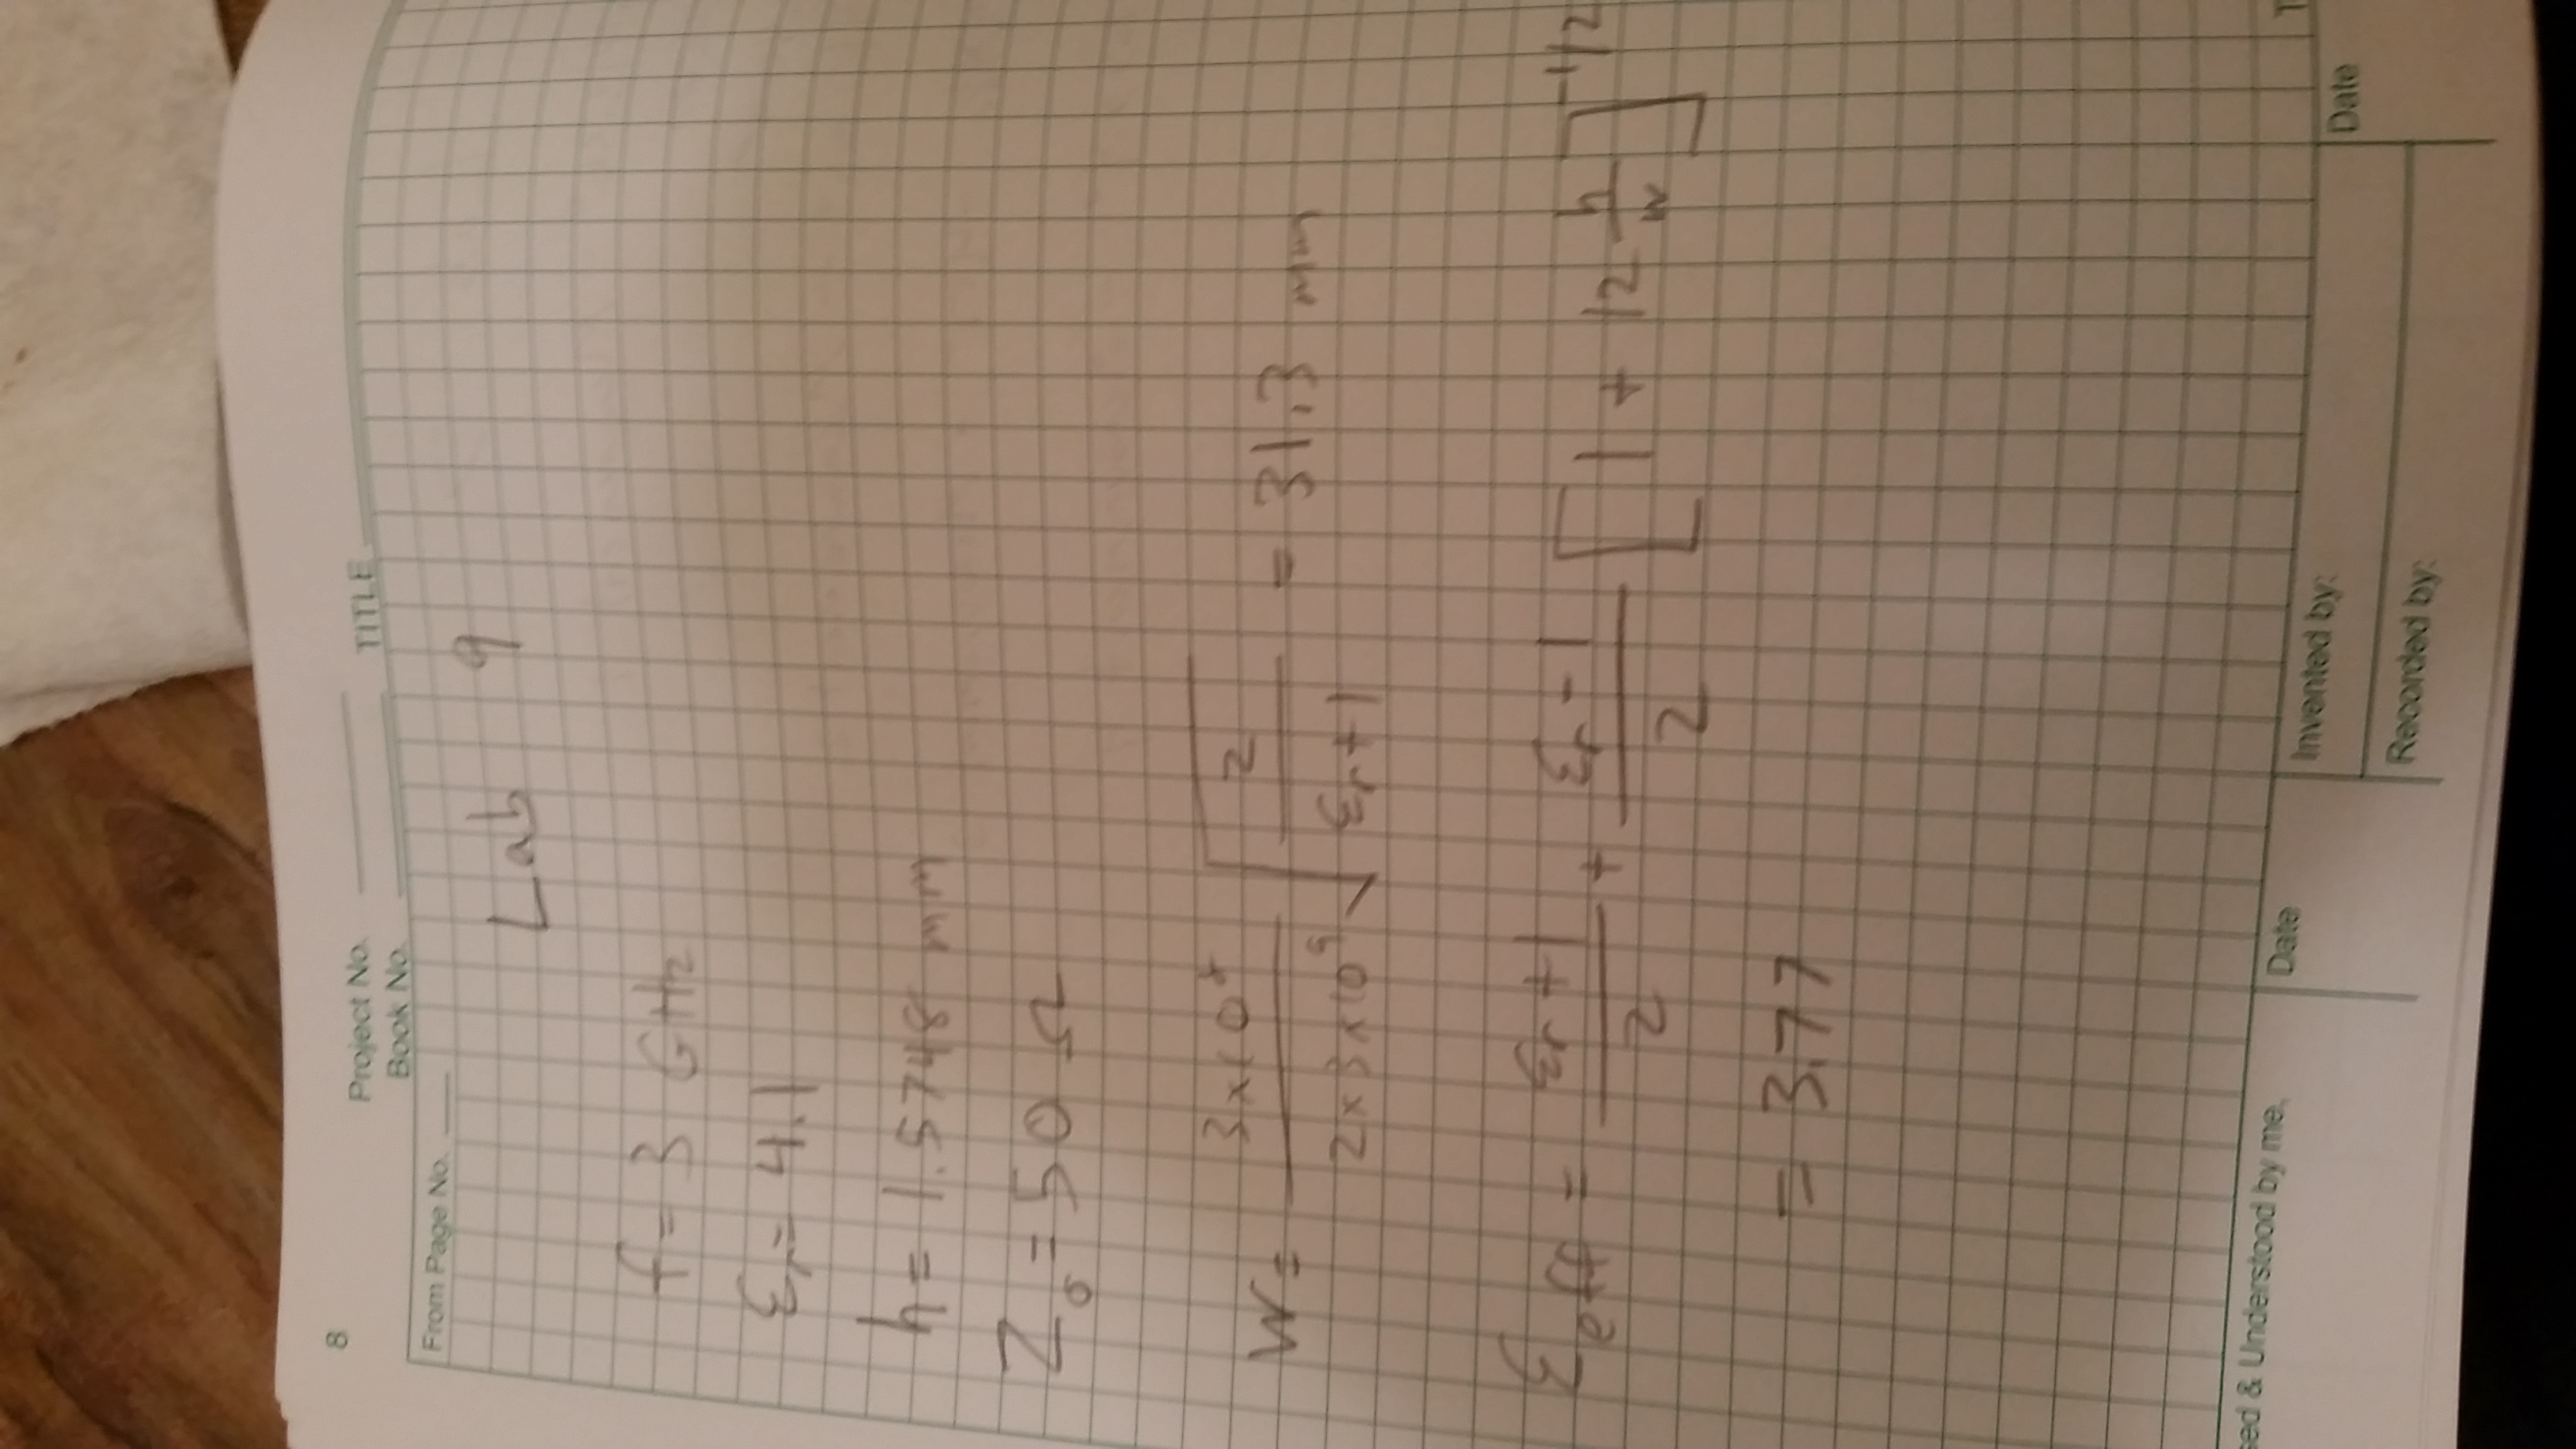 8
Project No. ______ TITLE
Book No. ______
From Page No. ____
Lab 9
f = 3 GHz
εr = 4.1
h = 1.5748 mm
Z0 = 50 Ω
W = (3x10^8 / 2x3x10^9) √(2 / εr+1) = 31.3 mm
εeff = (εr+1)/2 + (εr-1)/2 [1 + 12 h/w]^-1/2
= 3.77
sed & Understood by me,
Date
Invented by:
Date
Recorded by: